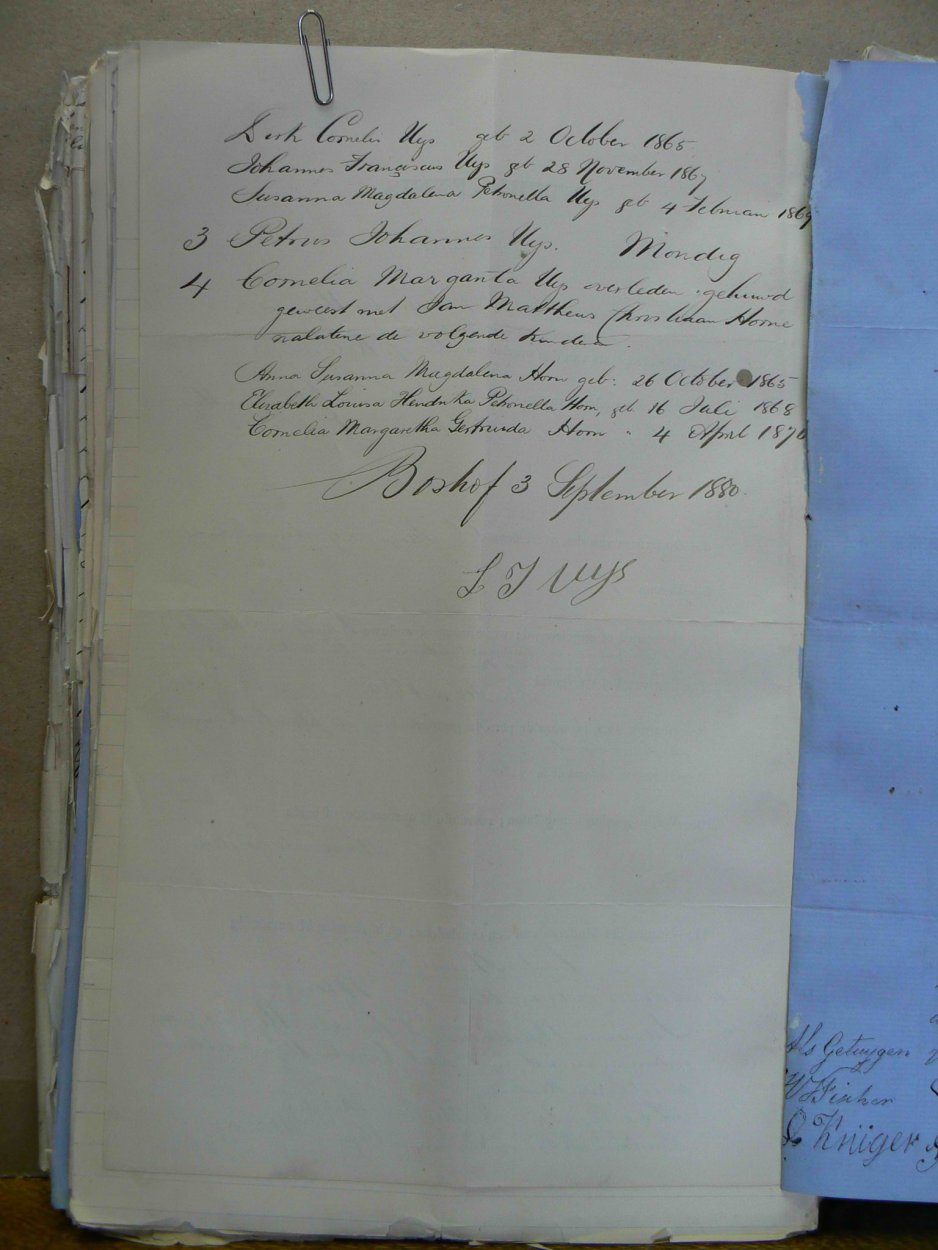 Dirk Cornelis Uys geb 2 October 1865
Johannes Franciscus Uys gb 28 November 1867
Susanna Magdalena Petronella Uys geb 4 Februari 1869
3 Petrus Johannes Uys. Mondig
4 Cornelia Margarita Uys overleden gehuwd
geweest met Jan Mattheus Christiaan Horne
nalatene de volgende kinderen.
Anna Susanna Magdalena Horn geb: 26 October 1865
Elizabeth Louisa Hendrika Petronella Horn, geb 16 Juli 1868
Cornelia Margaretha Gertruida Horn " 4 April 187
Boshof 3 September 1880.
L J Uys
Als Getuygen
Krüger